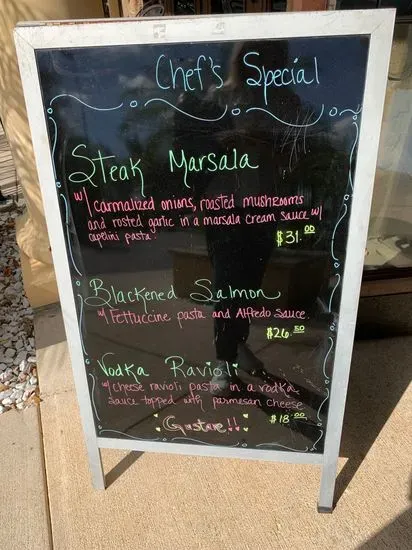 Chef's Special
Steak Marsala
w/ carmalized onions, roasted mushrooms
and rosted garlic in a marsala cream sauce w/
capelini pasta.
$31.00
Blackened Salmon
w/ Fettuccine pasta and Alfredo Sauce.
$26.50
Vodka Ravioli
w/ cheese ravioli pasta in a vodka
sauce topped with parmesan cheese
$18.00
Gustare!!